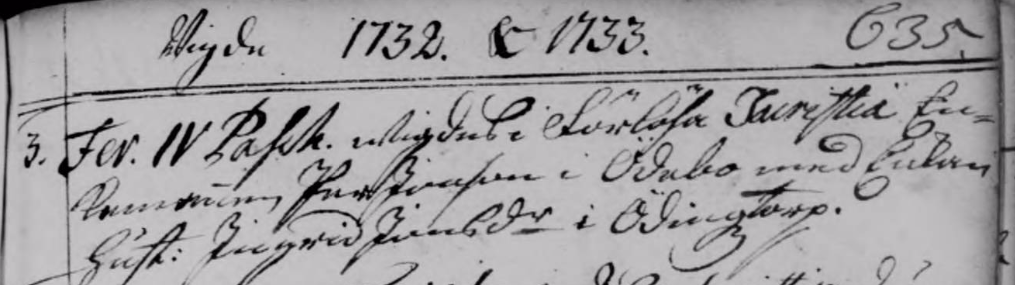 Wigde 1732. & 1733. 635.
3. Fer. IV Pasch. wigdes i Förlösa Sacristia En-
kemannen Per Jonson i Ödebo med Enkan
Hust: Ingrid Jonsdr i Ödingtorp.